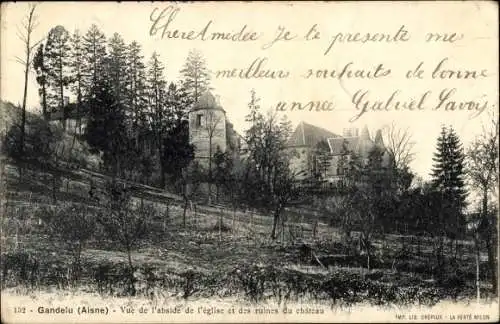 Cher Amedee Je te présente me
meilleur souhaits de bonne
année Gabriel Savois
132 - Gandelu (Aisne) - Vue de l'abside de l'église et des ruines du château
IMP. LIB. CRÉPAUX - LA FERTÉ MILON